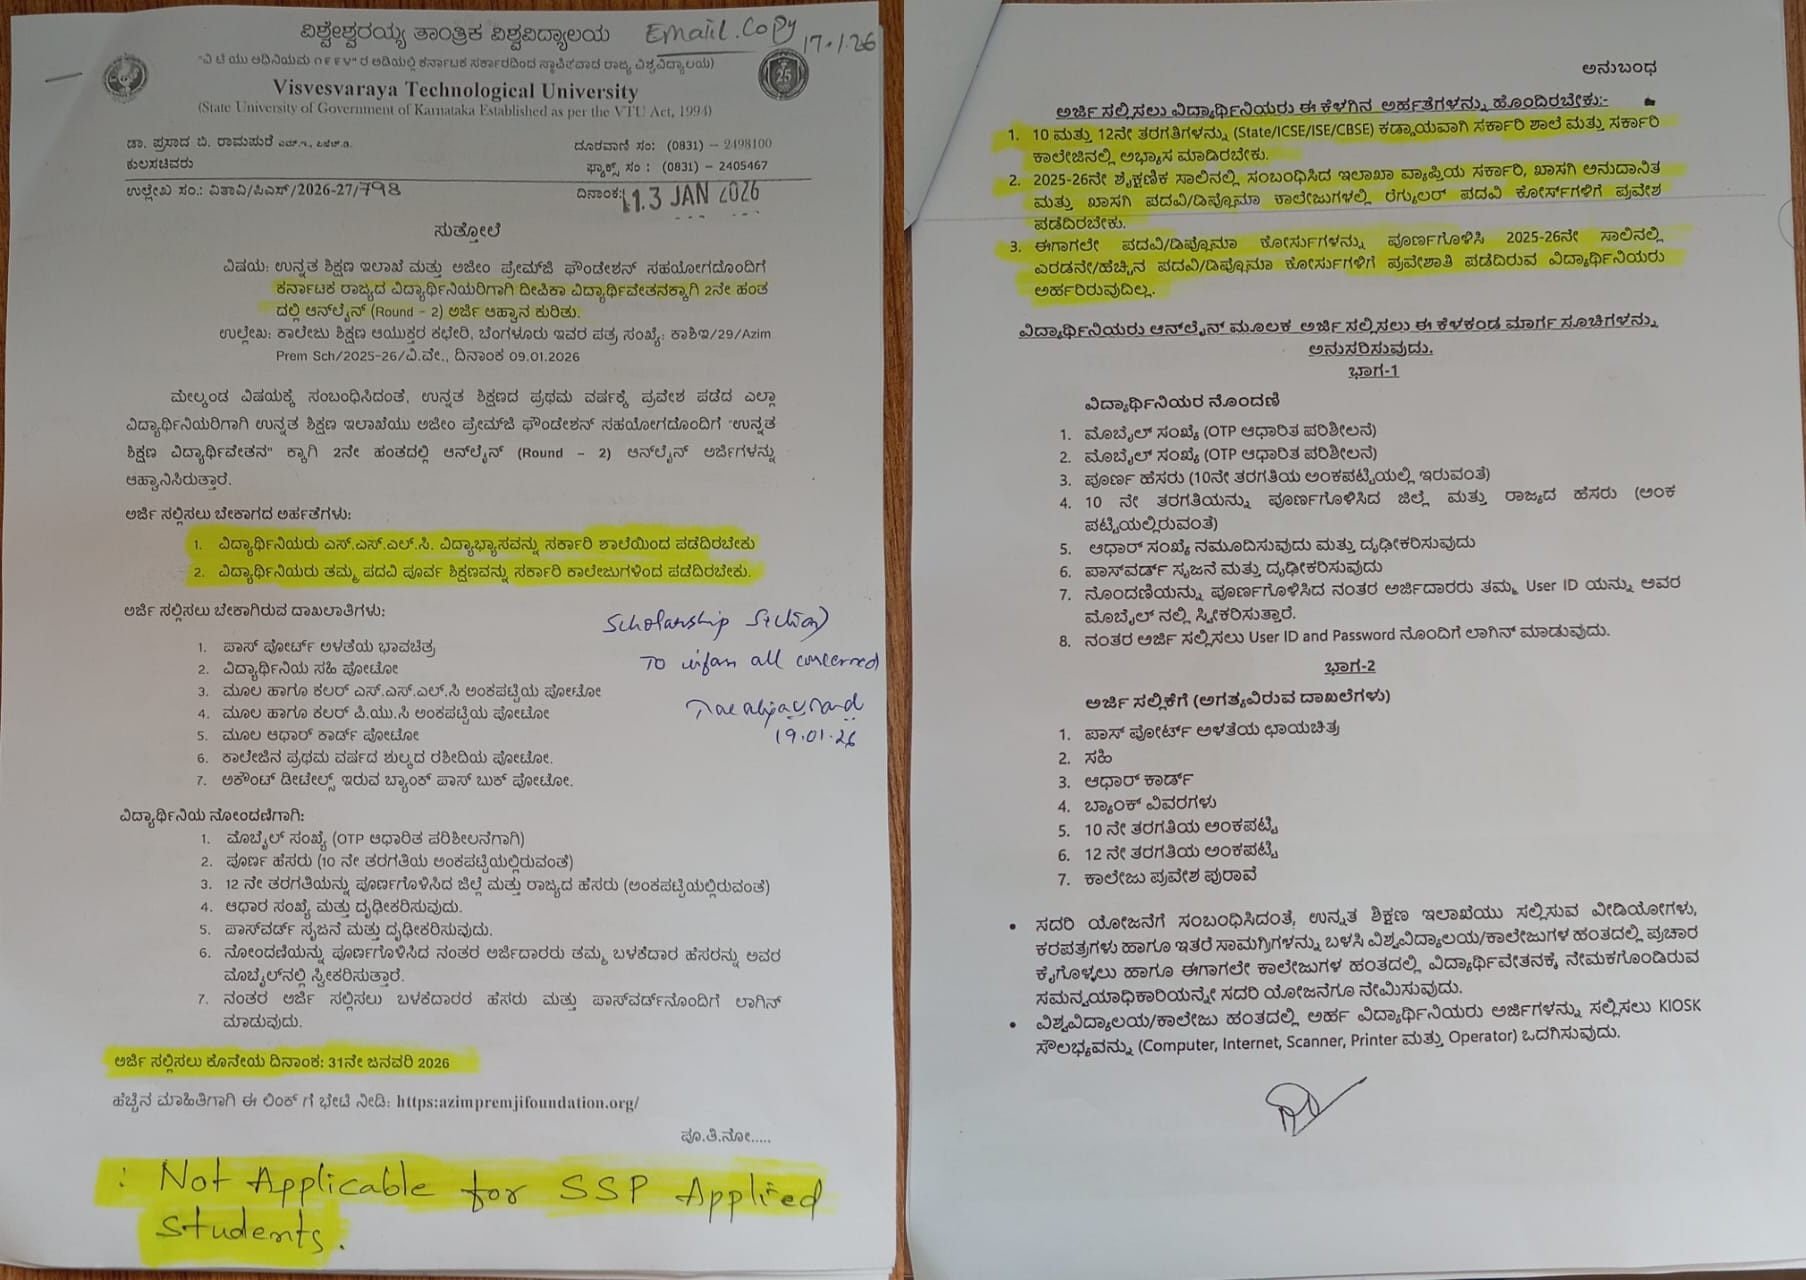 ವಿಶ್ವೇಶ್ವರಯ್ಯ ತಾಂತ್ರಿಕ ವಿಶ್ವವಿದ್ಯಾಲಯ
Email.Copy
17.1.26
"ವಿ ಟಿ ಯು ಅಧಿನಿಯಮ ೧೯೯೪" ರ ಅಡಿಯಲ್ಲಿ ಕರ್ನಾಟಕ ಸರ್ಕಾರದಿಂದ ಸ್ಥಾಪಿತವಾದ ರಾಜ್ಯ ವಿಶ್ವವಿದ್ಯಾಲಯ)
Visvesvaraya Technological University
(State University of Government of Karnataka Established as per the VTU Act, 1994)
25
ಡಾ. ಪ್ರಸಾದ ಬಿ. ರಾಮಪುರೆ ಎಮ್.ಇ., ಪಿಎಚ್.ಡಿ.
ಕುಲಸಚಿವರು
ದೂರವಾಣಿ ಸಂ: (0831) – 2498100
ಫ್ಯಾಕ್ಸ್ ಸಂ : (0831) – 2405467
ಉಲ್ಲೇಖ ಸಂ.: ವಿತಾವಿ/ಪಿಎಸ್/2026-27/798
ದಿನಾಂಕ: 13 JAN 2026
ಸುತ್ತೋಲೆ
ವಿಷಯ: ಉನ್ನತ ಶಿಕ್ಷಣ ಇಲಾಖೆ ಮತ್ತು ಅಜೀಂ ಪ್ರೇಮ್‌ಜಿ ಫೌಂಡೇಶನ್ ಸಹಯೋಗದೊಂದಿಗೆ
ಕರ್ನಾಟಕ ರಾಜ್ಯದ ವಿದ್ಯಾರ್ಥಿನಿಯರಿಗಾಗಿ ದೀಪಿಕಾ ವಿದ್ಯಾರ್ಥಿವೇತನಕ್ಕಾಗಿ 2ನೇ ಹಂತ
ದಲ್ಲಿ ಆನ್‌ಲೈನ್ (Round – 2) ಅರ್ಜಿ ಆಹ್ವಾನ ಕುರಿತು.
ಉಲ್ಲೇಖ: ಕಾಲೇಜು ಶಿಕ್ಷಣ ಆಯುಕ್ತರ ಕಛೇರಿ, ಬೆಂಗಳೂರು ಇವರ ಪತ್ರ ಸಂಖ್ಯೆ: ಕಾಶಿಇ/29/Azim
Prem Sch/2025-26/ವಿ.ವೇ., ದಿನಾಂಕ 09.01.2026
ಮೇಲ್ಕಂಡ ವಿಷಯಕ್ಕೆ ಸಂಬಂಧಿಸಿದಂತೆ, ಉನ್ನತ ಶಿಕ್ಷಣದ ಪ್ರಥಮ ವರ್ಷಕ್ಕೆ ಪ್ರವೇಶ ಪಡೆದ ಎಲ್ಲಾ
ವಿದ್ಯಾರ್ಥಿನಿಯರಿಗಾಗಿ ಉನ್ನತ ಶಿಕ್ಷಣ ಇಲಾಖೆಯು ಅಜೀಂ ಪ್ರೇಮ್‌ಜಿ ಫೌಂಡೇಶನ್ ಸಹಯೋಗದೊಂದಿಗೆ "ಉನ್ನತ
ಶಿಕ್ಷಣ ವಿದ್ಯಾರ್ಥಿವೇತನ" ಕ್ಕಾಗಿ 2ನೇ ಹಂತದಲ್ಲಿ ಆನ್‌ಲೈನ್ (Round – 2) ಆನ್‌ಲೈನ್ ಅರ್ಜಿಗಳನ್ನು
ಆಹ್ವಾನಿಸಿರುತ್ತಾರೆ.
ಅರ್ಜಿ ಸಲ್ಲಿಸಲು ಬೇಕಾಗದ ಅರ್ಹತೆಗಳು:
1. ವಿದ್ಯಾರ್ಥಿನಿಯರು ಎಸ್.ಎಸ್.ಎಲ್.ಸಿ. ವಿದ್ಯಾಭ್ಯಾಸವನ್ನು ಸರ್ಕಾರಿ ಶಾಲೆಯಿಂದ ಪಡೆದಿರಬೇಕು
2. ವಿದ್ಯಾರ್ಥಿನಿಯರು ತಮ್ಮ ಪದವಿ ಪೂರ್ವ ಶಿಕ್ಷಣವನ್ನು ಸರ್ಕಾರಿ ಕಾಲೇಜುಗಳಿಂದ ಪಡೆದಿರಬೇಕು.
ಅರ್ಜಿ ಸಲ್ಲಿಸಲು ಬೇಕಾಗಿರುವ ದಾಖಲಾತಿಗಳು:
1. ಪಾಸ್ ಪೋರ್ಟ್ ಅಳತೆಯ ಭಾವಚಿತ್ರ
2. ವಿದ್ಯಾರ್ಥಿನಿಯ ಸಹಿ ಫೋಟೋ
3. ಮೂಲ ಹಾಗೂ ಕಲರ್ ಎಸ್.ಎಸ್.ಎಲ್.ಸಿ ಅಂಕಪಟ್ಟಿಯ ಫೋಟೋ
4. ಮೂಲ ಹಾಗೂ ಕಲರ್ ಪಿ.ಯು.ಸಿ ಅಂಕಪಟ್ಟಿಯ ಫೋಟೋ
5. ಮೂಲ ಆಧಾರ್ ಕಾರ್ಡ್ ಫೋಟೋ
6. ಕಾಲೇಜಿನ ಪ್ರಥಮ ವರ್ಷದ ಶುಲ್ಕದ ರಶೀದಿಯ ಫೋಟೋ.
7. ಅಕೌಂಟ್ ಡೀಟೇಲ್ಸ್ ಇರುವ ಬ್ಯಾಂಕ್ ಪಾಸ್ ಬುಕ್ ಫೋಟೋ.
Scholarship Section
To inform all concerned
19.01.26
ವಿದ್ಯಾರ್ಥಿನಿಯ ನೋಂದಣಿಗಾಗಿ:
1. ಮೊಬೈಲ್ ಸಂಖ್ಯೆ (OTP ಆಧಾರಿತ ಪರಿಶೀಲನೆಗಾಗಿ)
2. ಪೂರ್ಣ ಹೆಸರು (10 ನೇ ತರಗತಿಯ ಅಂಕಪಟ್ಟಿಯಲ್ಲಿರುವಂತೆ)
3. 12 ನೇ ತರಗತಿಯನ್ನು ಪೂರ್ಣಗೊಳಿಸಿದ ಜಿಲ್ಲೆ ಮತ್ತು ರಾಜ್ಯದ ಹೆಸರು (ಅಂಕಪಟ್ಟಿಯಲ್ಲಿರುವಂತೆ)
4. ಆಧಾರ ಸಂಖ್ಯೆ ಮತ್ತು ದೃಢೀಕರಿಸುವುದು.
5. ಪಾಸ್‌ವರ್ಡ್ ಸೃಜನೆ ಮತ್ತು ದೃಢೀಕರಿಸುವುದು.
6. ನೋಂದಣಿಯನ್ನು ಪೂರ್ಣಗೊಳಿಸಿದ ನಂತರ ಅರ್ಜಿದಾರರು ತಮ್ಮ ಬಳಕೆದಾರ ಹೆಸರನ್ನು ಅವರ
ಮೊಬೈಲ್‌ನಲ್ಲಿ ಸ್ವೀಕರಿಸುತ್ತಾರೆ.
7. ನಂತರ ಅರ್ಜಿ ಸಲ್ಲಿಸಲು ಬಳಕೆದಾರರ ಹೆಸರು ಮತ್ತು ಪಾಸ್‌ವರ್ಡ್‌ನೊಂದಿಗೆ ಲಾಗಿನ್
ಮಾಡುವುದು.
ಅರ್ಜಿ ಸಲ್ಲಿಸಲು ಕೊನೇಯ ದಿನಾಂಕ: 31ನೇ ಜನವರಿ 2026
ಹೆಚ್ಚಿನ ಮಾಹಿತಿಗಾಗಿ ಈ ಲಿಂಕ್ ಗೆ ಭೇಟಿ ನೀಡಿ: https:azimpremjifoundation.org/
ಪೂ.ತಿ.ನೋ.....
: Not Applicable for SSP Applied
Students.
ಅನುಬಂಧ
ಅರ್ಜಿ ಸಲ್ಲಿಸಲು ವಿದ್ಯಾರ್ಥಿನಿಯರು ಈ ಕೆಳಗಿನ ಅರ್ಹತೆಗಳನ್ನು ಹೊಂದಿರಬೇಕು:-
1. 10 ಮತ್ತು 12ನೇ ತರಗತಿಗಳನ್ನು (State/ICSE/ISE/CBSE) ಕಡ್ಡಾಯವಾಗಿ ಸರ್ಕಾರಿ ಶಾಲೆ ಮತ್ತು ಸರ್ಕಾರಿ
ಕಾಲೇಜಿನಲ್ಲಿ ಅಭ್ಯಾಸ ಮಾಡಿರಬೇಕು.
2. 2025-26ನೇ ಶೈಕ್ಷಣಿಕ ಸಾಲಿನಲ್ಲಿ ಸಂಬಂಧಿಸಿದ ಇಲಾಖಾ ವ್ಯಾಪ್ತಿಯ ಸರ್ಕಾರಿ, ಖಾಸಗಿ ಅನುದಾನಿತ
ಮತ್ತು ಖಾಸಗಿ ಪದವಿ/ಡಿಪ್ಲೊಮಾ ಕಾಲೇಜುಗಳಲ್ಲಿ ರೆಗ್ಯುಲರ್ ಪದವಿ ಕೋರ್ಸ್‌ಗಳಿಗೆ ಪ್ರವೇಶ
ಪಡೆದಿರಬೇಕು.
3. ಈಗಾಗಲೇ ಪದವಿ/ಡಿಪ್ಲೊಮಾ ಕೋರ್ಸುಗಳನ್ನು ಪೂರ್ಣಗೊಳಿಸಿ 2025-26ನೇ ಸಾಲಿನಲ್ಲಿ
ಎರಡನೇ/ಹೆಚ್ಚಿನ ಪದವಿ/ಡಿಪ್ಲೊಮಾ ಕೋರ್ಸುಗಳಿಗೆ ಪ್ರವೇಶಾತಿ ಪಡೆದಿರುವ ವಿದ್ಯಾರ್ಥಿನಿಯರು
ಅರ್ಹರಿರುವುದಿಲ್ಲ.
ವಿದ್ಯಾರ್ಥಿನಿಯರು ಆನ್‌ಲೈನ್ ಮೂಲಕ ಅರ್ಜಿ ಸಲ್ಲಿಸಲು ಈ ಕೆಳಕಂಡ ಮಾರ್ಗ ಸೂಚಿಗಳನ್ನು
ಅನುಸರಿಸುವುದು.
ಭಾಗ-1
ವಿದ್ಯಾರ್ಥಿನಿಯರ ನೊಂದಣಿ
1. ಮೊಬೈಲ್ ಸಂಖ್ಯೆ (OTP ಆಧಾರಿತ ಪರಿಶೀಲನೆ)
2. ಮೊಬೈಲ್ ಸಂಖ್ಯೆ (OTP ಆಧಾರಿತ ಪರಿಶೀಲನೆ)
3. ಪೂರ್ಣ ಹೆಸರು (10ನೇ ತರಗತಿಯ ಅಂಕಪಟ್ಟಿಯಲ್ಲಿ ಇರುವಂತೆ)
4. 10 ನೇ ತರಗತಿಯನ್ನು ಪೂರ್ಣಗೊಳಿಸಿದ ಜಿಲ್ಲೆ ಮತ್ತು ರಾಜ್ಯದ ಹೆಸರು (ಅಂಕ
ಪಟ್ಟಿಯಲ್ಲಿರುವಂತೆ)
5. ಆಧಾರ್ ಸಂಖ್ಯೆ ನಮೂದಿಸುವುದು ಮತ್ತು ದೃಢೀಕರಿಸುವುದು
6. ಪಾಸ್‌ವರ್ಡ್ ಸೃಜನೆ ಮತ್ತು ದೃಢೀಕರಿಸುವುದು
7. ನೊಂದಣಿಯನ್ನು ಪೂರ್ಣಗೊಳಿಸಿದ ನಂತರ ಅರ್ಜಿದಾರರು ತಮ್ಮ User ID ಯನ್ನು ಅವರ
ಮೊಬೈಲ್ ನಲ್ಲಿ ಸ್ವೀಕರಿಸುತ್ತಾರೆ.
8. ನಂತರ ಅರ್ಜಿ ಸಲ್ಲಿಸಲು User ID and Password ನೊಂದಿಗೆ ಲಾಗಿನ್ ಮಾಡುವುದು.
ಭಾಗ-2
ಅರ್ಜಿ ಸಲ್ಲಿಕೆಗೆ (ಅಗತ್ಯವಿರುವ ದಾಖಲೆಗಳು)
1. ಪಾಸ್ ಪೋರ್ಟ್ ಅಳತೆಯ ಛಾಯಚಿತ್ರ
2. ಸಹಿ
3. ಆಧಾರ್ ಕಾರ್ಡ್
4. ಬ್ಯಾಂಕ್ ವಿವರಗಳು
5. 10 ನೇ ತರಗತಿಯ ಅಂಕಪಟ್ಟಿ
6. 12 ನೇ ತರಗತಿಯ ಅಂಕಪಟ್ಟಿ
7. ಕಾಲೇಜು ಪ್ರವೇಶ ಪುರಾವೆ
• ಸದರಿ ಯೋಜನೆಗೆ ಸಂಬಂಧಿಸಿದಂತೆ, ಉನ್ನತ ಶಿಕ್ಷಣ ಇಲಾಖೆಯು ಸಲ್ಲಿಸುವ ವೀಡಿಯೋಗಳು,
ಕರಪತ್ರಗಳು ಹಾಗೂ ಇತರೆ ಸಾಮಗ್ರಿಗಳನ್ನು ಬಳಸಿ ವಿಶ್ವವಿದ್ಯಾಲಯ/ಕಾಲೇಜುಗಳ ಹಂತದಲ್ಲಿ ಪ್ರಚಾರ
ಕೈಗೊಳ್ಳಲು ಹಾಗೂ ಈಗಾಗಲೇ ಕಾಲೇಜುಗಳ ಹಂತದಲ್ಲಿ ವಿದ್ಯಾರ್ಥಿವೇತನಕ್ಕೆ ನೇಮಕಗೊಂಡಿರುವ
ಸಮನ್ವಯಾಧಿಕಾರಿಯನ್ನೇ ಸದರಿ ಯೋಜನೆಗೂ ನೇಮಿಸುವುದು.
• ವಿಶ್ವವಿದ್ಯಾಲಯ/ಕಾಲೇಜು ಹಂತದಲ್ಲಿ ಅರ್ಹ ವಿದ್ಯಾರ್ಥಿನಿಯರು ಅರ್ಜಿಗಳನ್ನು ಸಲ್ಲಿಸಲು KIOSK
ಸೌಲಭ್ಯವನ್ನು (Computer, Internet, Scanner, Printer ಮತ್ತು Operator) ಒದಗಿಸುವುದು.